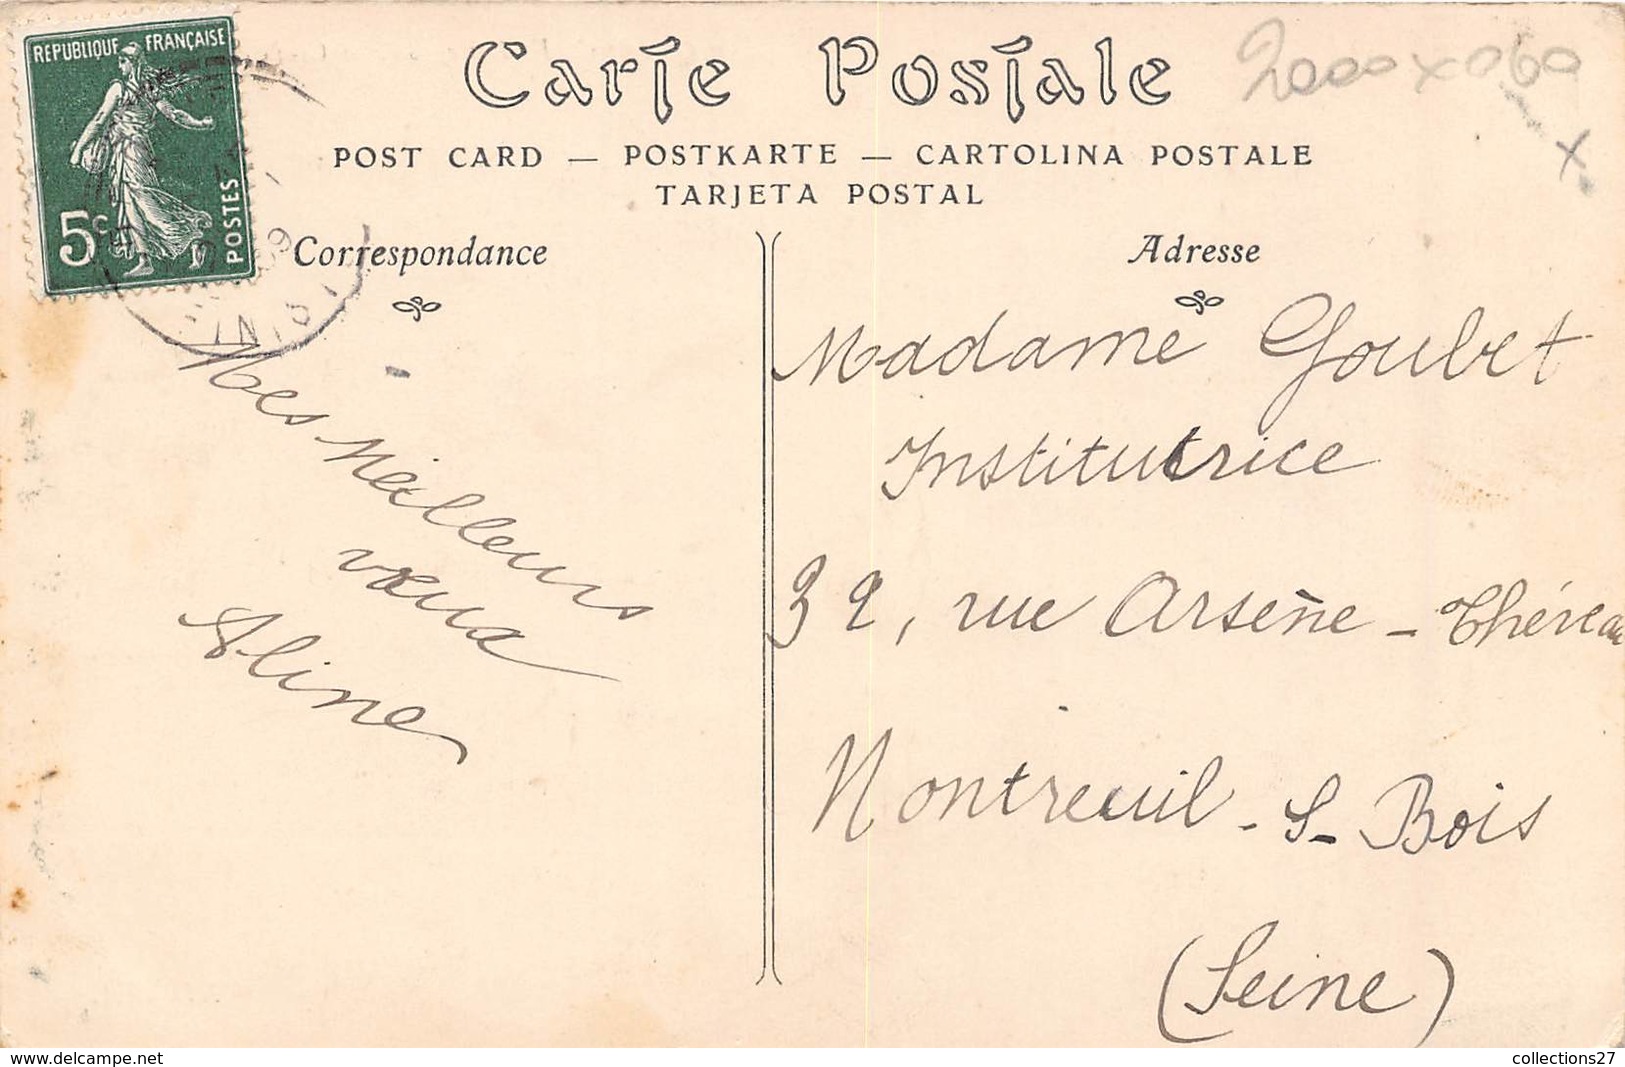 REPUBLIQUE FRANÇAISE
5c POSTES
Carte Postale
2000 x 060
x
POST CARD — POSTKARTE — CARTOLINA POSTALE
TARJETA POSTAL
Correspondance
Mes meilleurs
vœux
Aline
Adresse
Madame Goubet
Institutrice
32, rue Arsène-Chéreau
Montreuil-s-Bois
(Seine)
www.delcampe.net
collections27